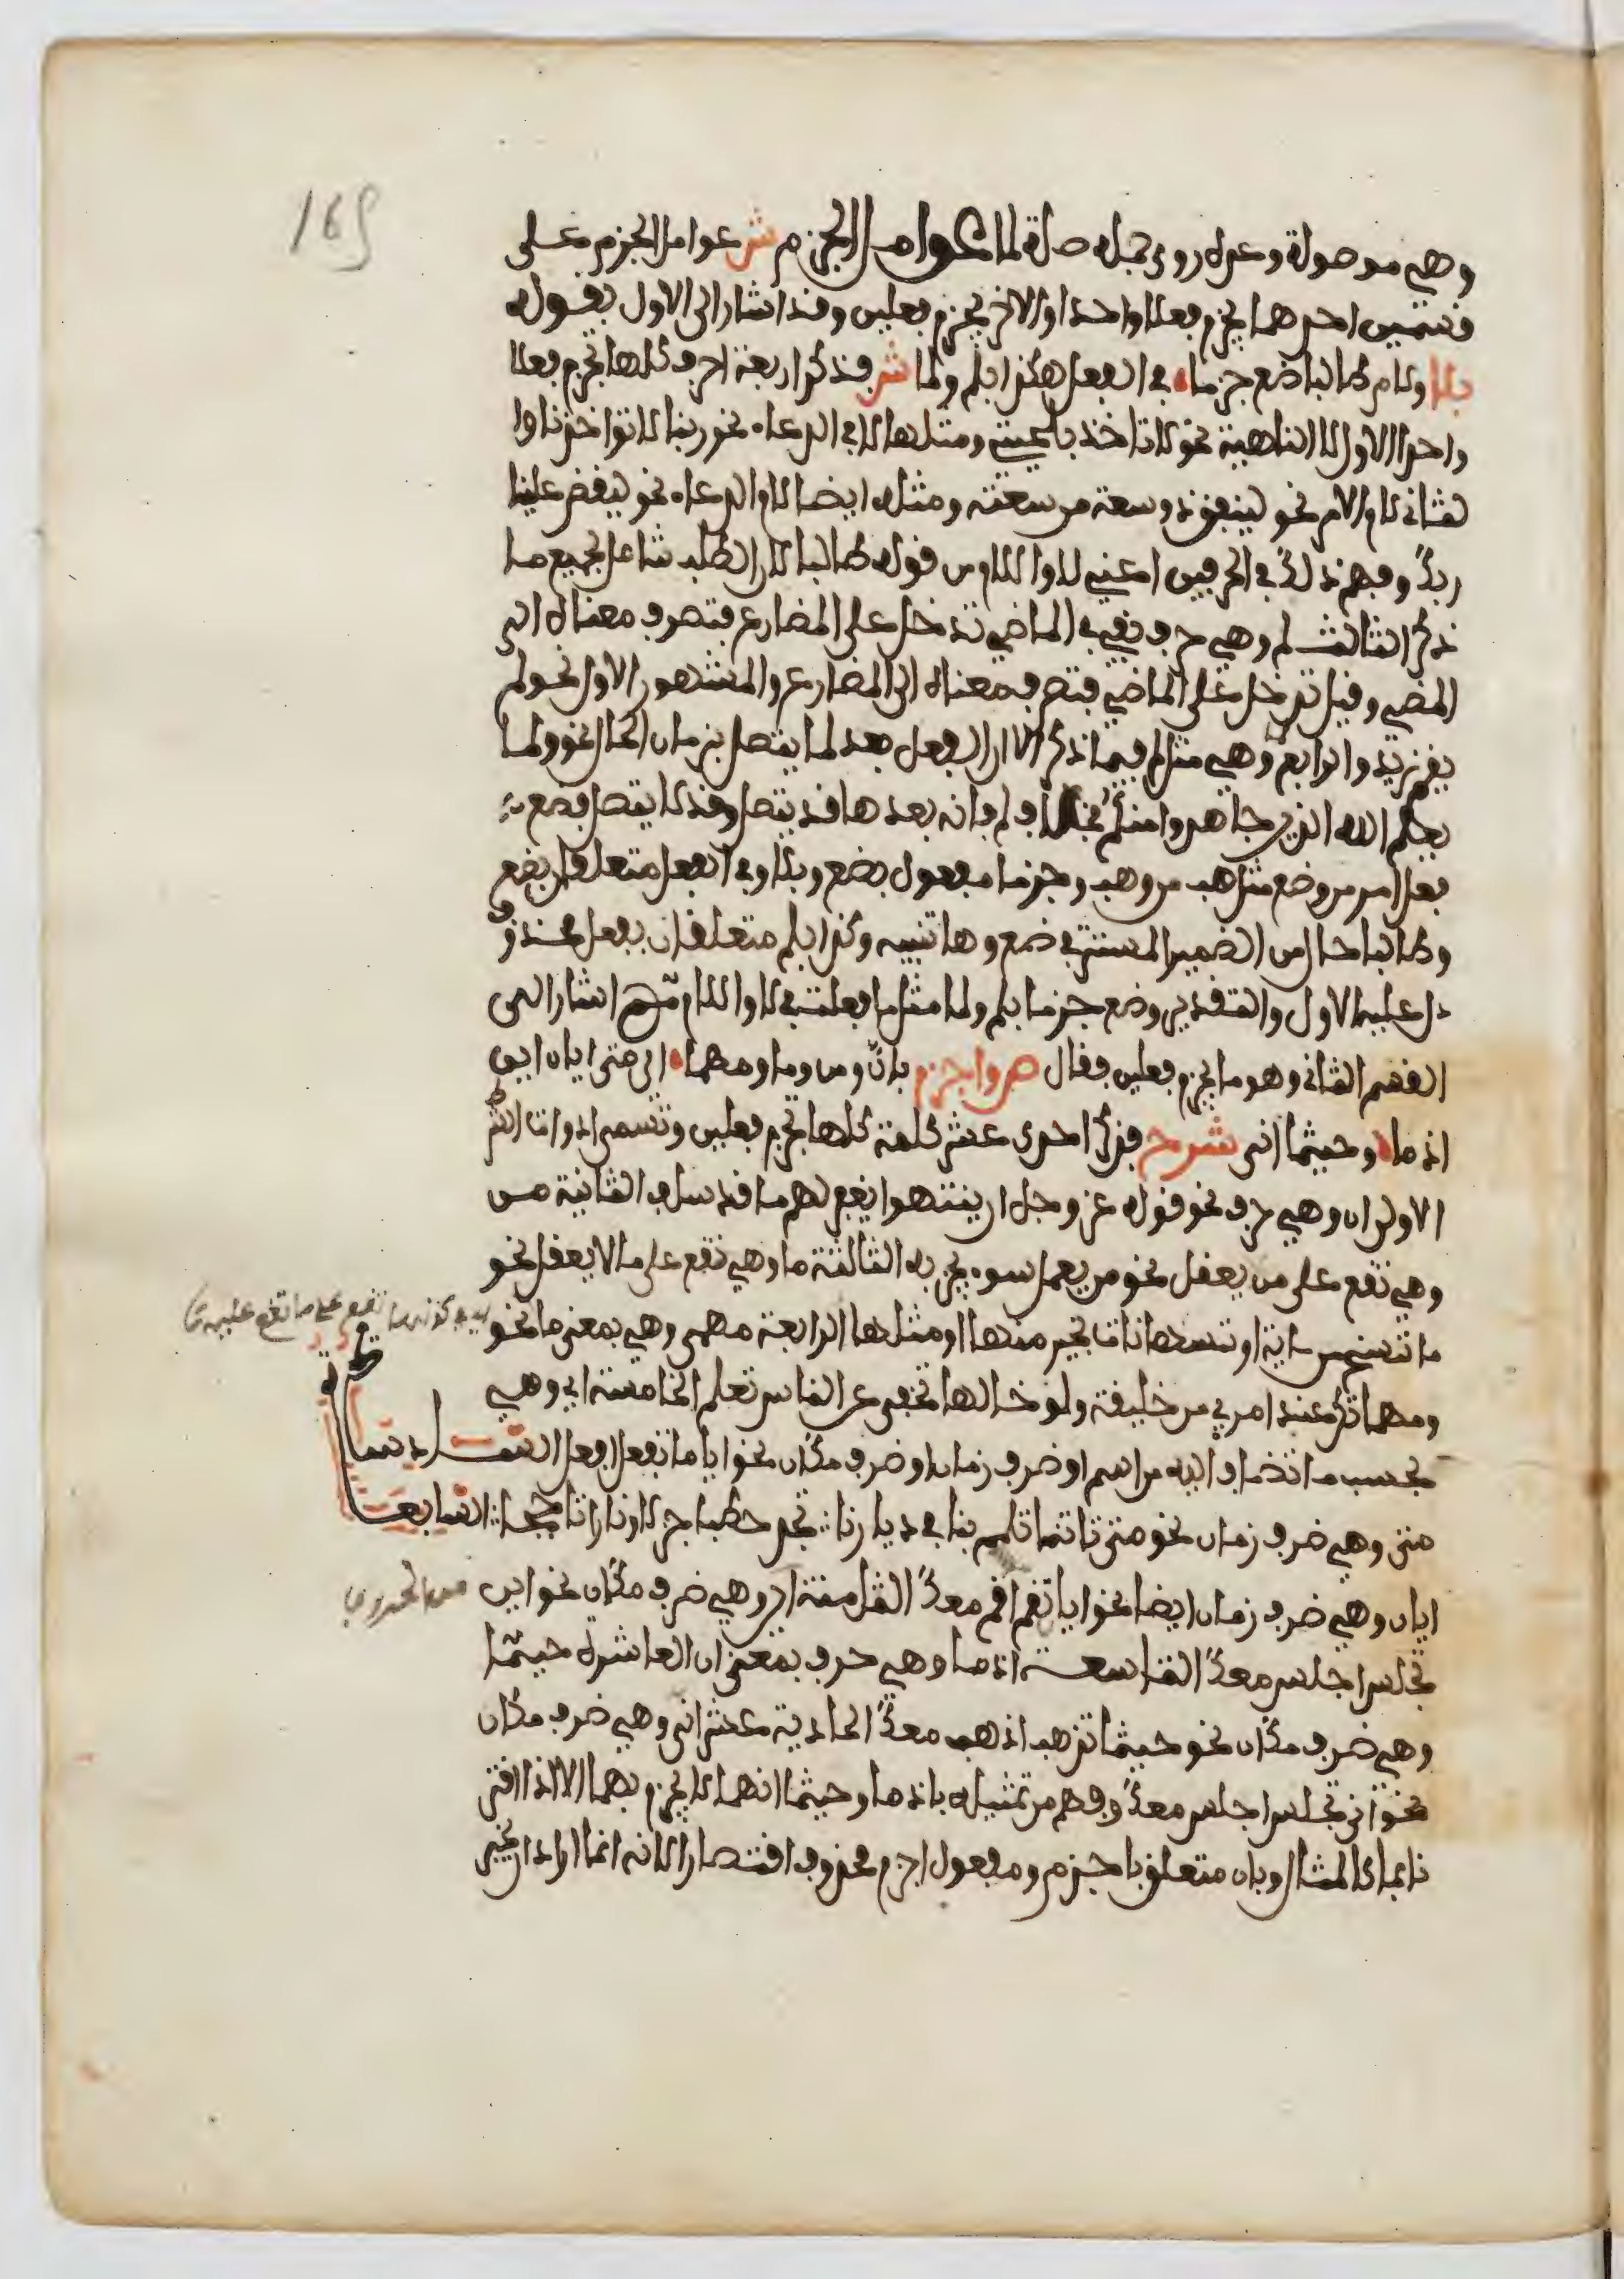 165
وهي موصولة وعدل روى جملة صلة لما عوامل الجزم ش عوامل الجزم على
قسمين احدهما يجزم فعلا واحدا والاخر يجزم فعلين وقد اشار الى الاول بقوله
بلا ولام طالبا ضع جزما في الفعل هكذا بلم ولما ش فذكر اربعة احرف كلها تجزم فعلا
واحدا الاول لا الناهية نحو لا تاخذ بلحيتي ومثلها لا في الدعاء نحو ربنا لا تواخذنا وا
لثاني لام الامر نحو لينفق ذو سعة من سعته ومثله ايضا لام الدعاء نحو ليقض علينا
ربك وفهم ذلك في الحرفين اعني لا واللام من قوله طالبا لان الطلب شامل لجميع ما
ذكر الثالث لم وهي حرف نفي في الماضي تدخل على المضارع فتصرف معناه الى
المضي وقيل تدخل على الماضي فتصرف معناه الى المضارع والمشهور الاول نحو لم
يقم زيد والرابع وهي مثل لم فيما ذكر الا ان الفعل بعد لما يتصل بزمان الحال نحو ولما
يعلم الله الذين جاهدوا منكم بخلاف لم فانه بعدها قد يتصل وقد لا يتصل فضع
فعل امر من وضع مثل هب من وهب وجزما مفعول بضع وبلا وفي الفعل متعلقان بضع
وطالبا حال من الضمير المستتر في ضع وها تنبيه وكذا بلم متعلقان بفعل محذوف
دل عليه الاول والتقدير وضع جزما بلم ولما مثل ما فعلت في لا واللام ثم اشار الى
القسم الثاني وهو ما يجزم فعلين فقال ص واجزم بان ومن وما ومهما اي متى ايان اين
اذما وحيثما انى شرح فذكر احدى عشر كلمة كلها تجزم فعلين وتسمى ادوات الشرط
الاولى ان وهي حرف نحو قوله عز وجل ان ينتهوا يغفر لهم ما قد سلف الثانية من
وهي تقع على من يعقل نحو من يعمل سوءا يجز به الثالثة ما وهي تقع على ما لا يعقل نحو
ما ننسخ من اية او ننسها نات بخير منها او مثلها الرابعة مهمى وهي بمعنى ما نحو
ومهما تكن عند امرئ من خليقة ولو خالها تخفى على الناس تعلم الخامسة اي وهي
بحسب ما تضاف اليه من اسم او ضرف زمان او ضرف مكان نحو ايا ما تفعل افعل السادسة
متى وهي ضرف زمان نحو متى تاتنا تلمم بنا في ديارنا تجد حطبا جزلا ونارا تاججا السابعة
ايان وهي ضرف زمان ايضا نحو ايان تقم اقم معك الثامنة اين وهي ضرف مكان نحو اين
تجلس اجلس معك التاسعة اذما وهي حرف بمعنى ان العاشرة حيثما
وهي ضرف مكان نحو حيثما تذهب اذهب معك الحادية عشر انى وهي ضرف مكان
نحو انى تجلس اجلس معك وفهم من تمثيله باذما وحيثما انهما لا يجزم بهما الا اذا اقتر
نا بما كالمثال وبان متعلق باجزم ومفعول اجزم محذوف اقتصارا لانه انما اراد ان يخبر